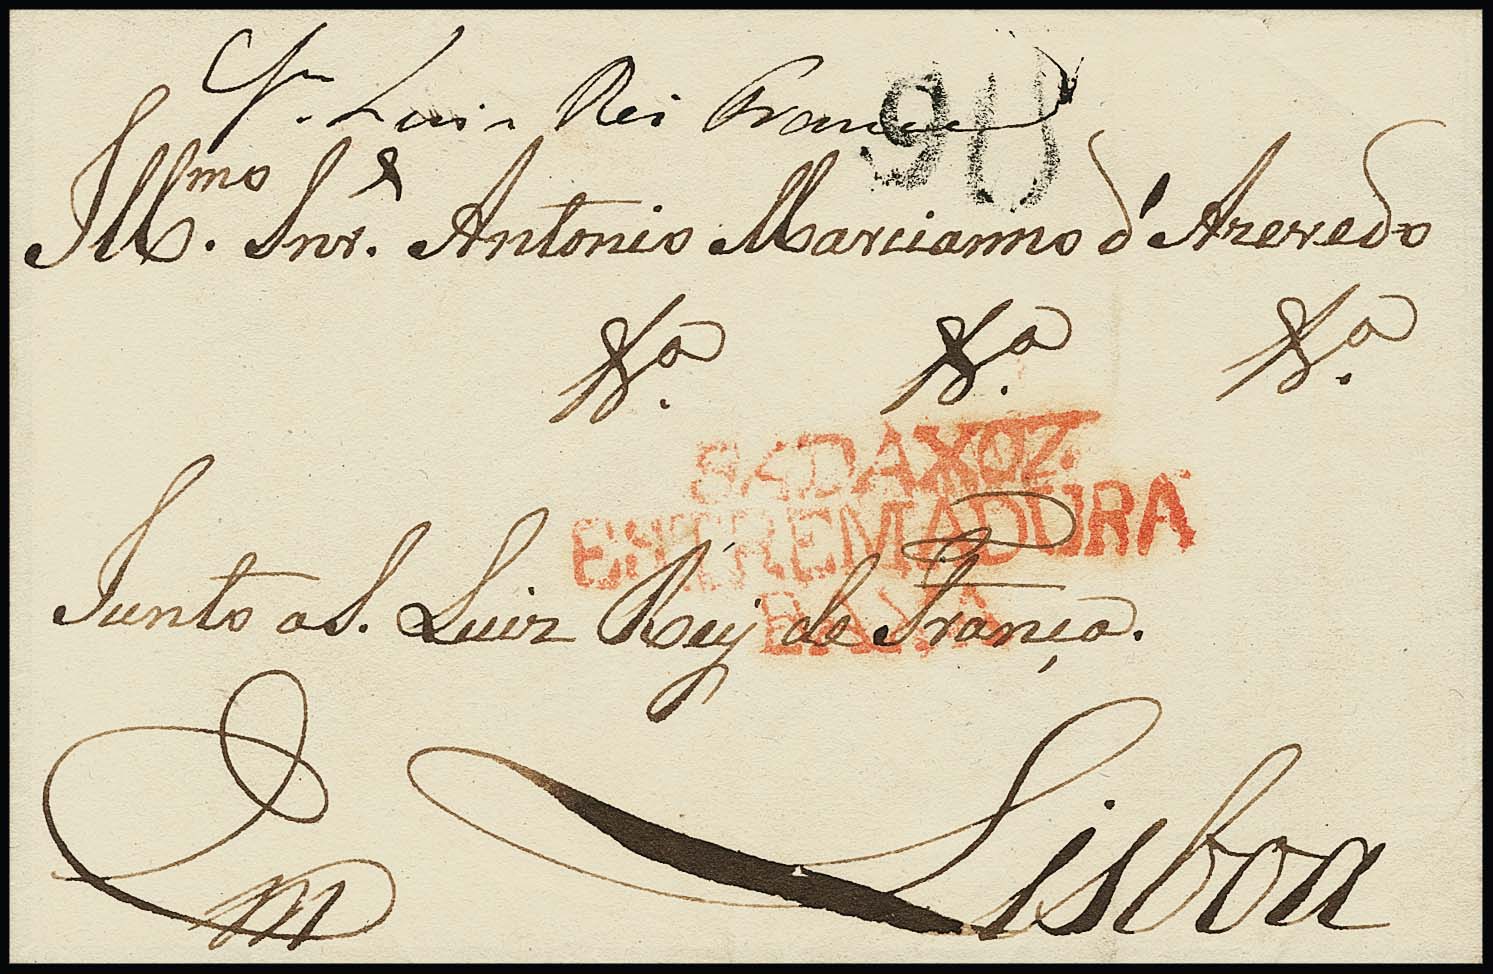 Luis Rei França 90
Ill.mo Snr. Antonio Marcianno d'Azevedo
BADAXOZ.
ESTREMADURA
BAXA
Junto a S. Luiz Rey de França.
Em Lisboa